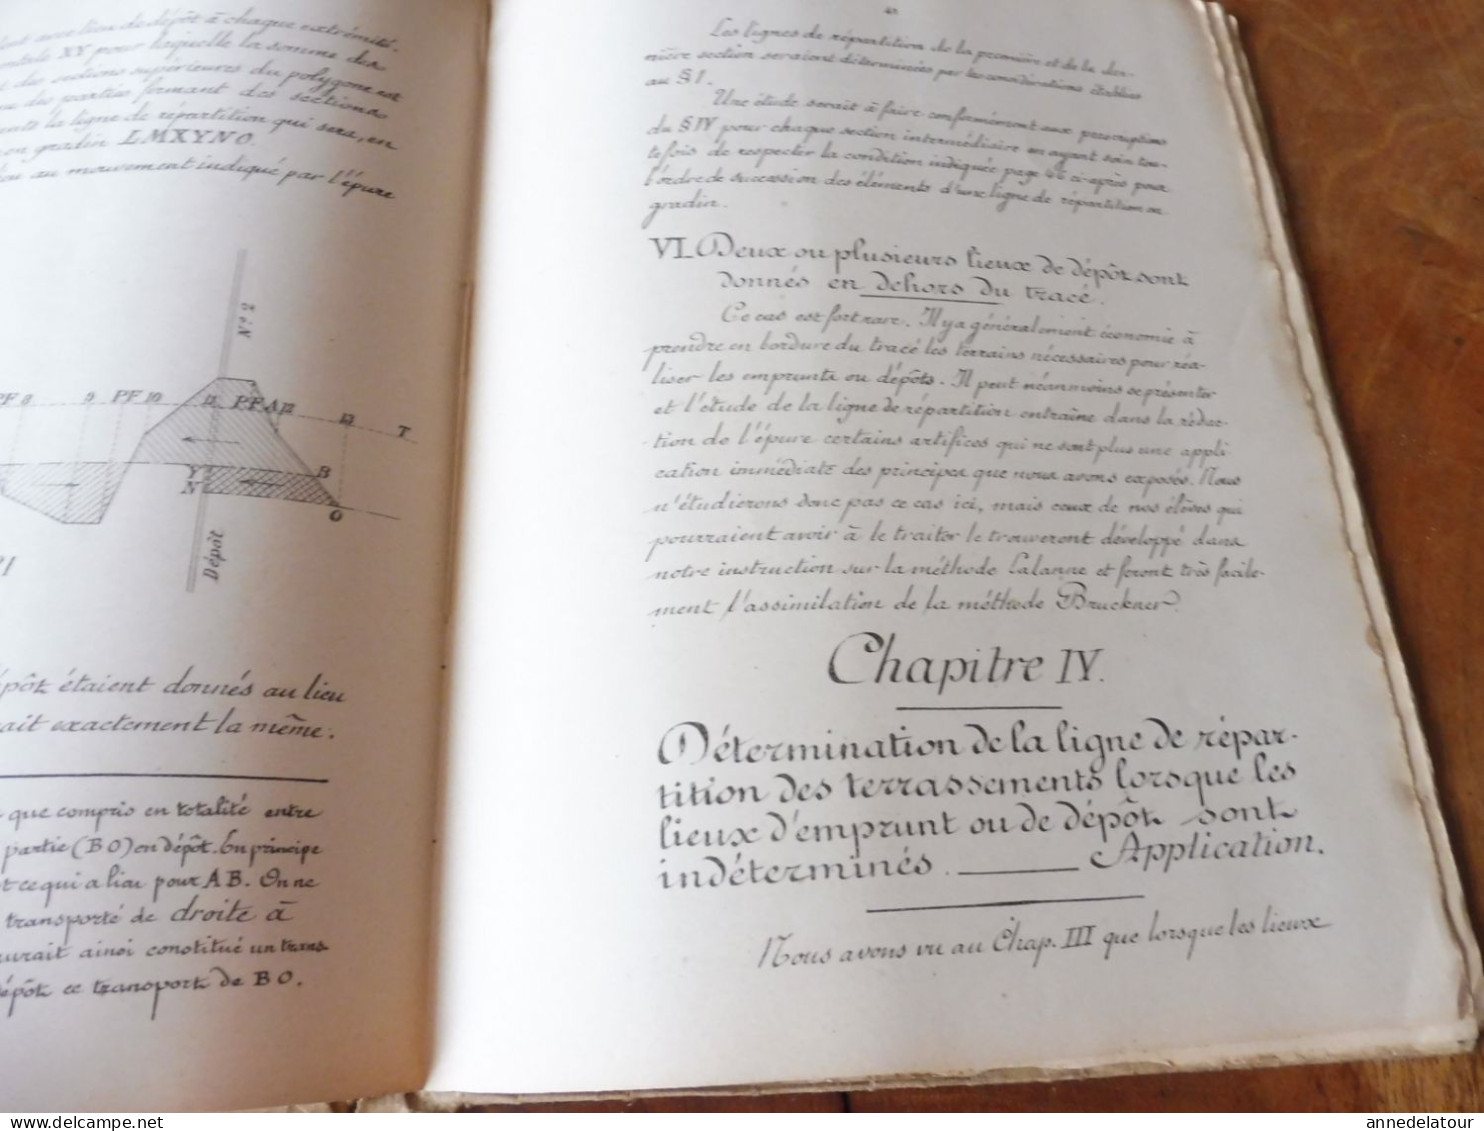 avec lieu de dépôt à chaque extrémité.
XY pour laquelle la somme des
des sections supérieures du polygone est
des parties formant des sections
la ligne de répartition qui sera, en
en gradin LMXYNO.
au mouvement indiqué par l'épure
N° 2
PF 8 9 PF 10 11 PF A 12 13 T
Y B
N O
Dépôt
étaient donnés au lieu
exactement la même.
que compris en totalité entre
partie (BO) en dépôt. En principe
ce qui a lieu pour AB. On ne
transporté de droite à
ainsi constitué un trans-
ce transport de BO.
Les lignes de répartition de la première et de la der-
nière section seraient déterminées par les considérations établies
au § I.
Une étude serait à faire conformément aux prescriptions
du § IV pour chaque section intermédiaire en ayant soin tou-
tefois de respecter la condition indiquée page 44 ci-après pour
l'ordre de succession des éléments d'une ligne de répartition en
gradin.
VI. Deux ou plusieurs lieux de dépôt sont
donnés en dehors du tracé.
Ce cas est fort rare. Il y a généralement économie à
prendre en bordure du tracé les terrains nécessaires pour réa-
liser les emprunts ou dépôts. Il peut néanmoins se présenter
et l'étude de la ligne de répartition entraîne dans la rédac-
tion de l'épure certains artifices qui ne sont plus une appli-
cation immédiate des principes que nous avons exposés. Nous
n'étudierons donc pas ce cas ici, mais ceux de nos élèves qui
pourraient avoir à le traiter le trouveront développé dans
notre instruction sur la méthode Lalanne et feront très facile-
ment l'assimilation de la méthode Bruckner.
Chapitre IV.
Détermination de la ligne de répar-
tition des terrassements lorsque les
lieux d'emprunt ou de dépôt sont
indéterminés. — Application.
Nous avons vu au Chap. III que lorsque les lieux
annedelatour